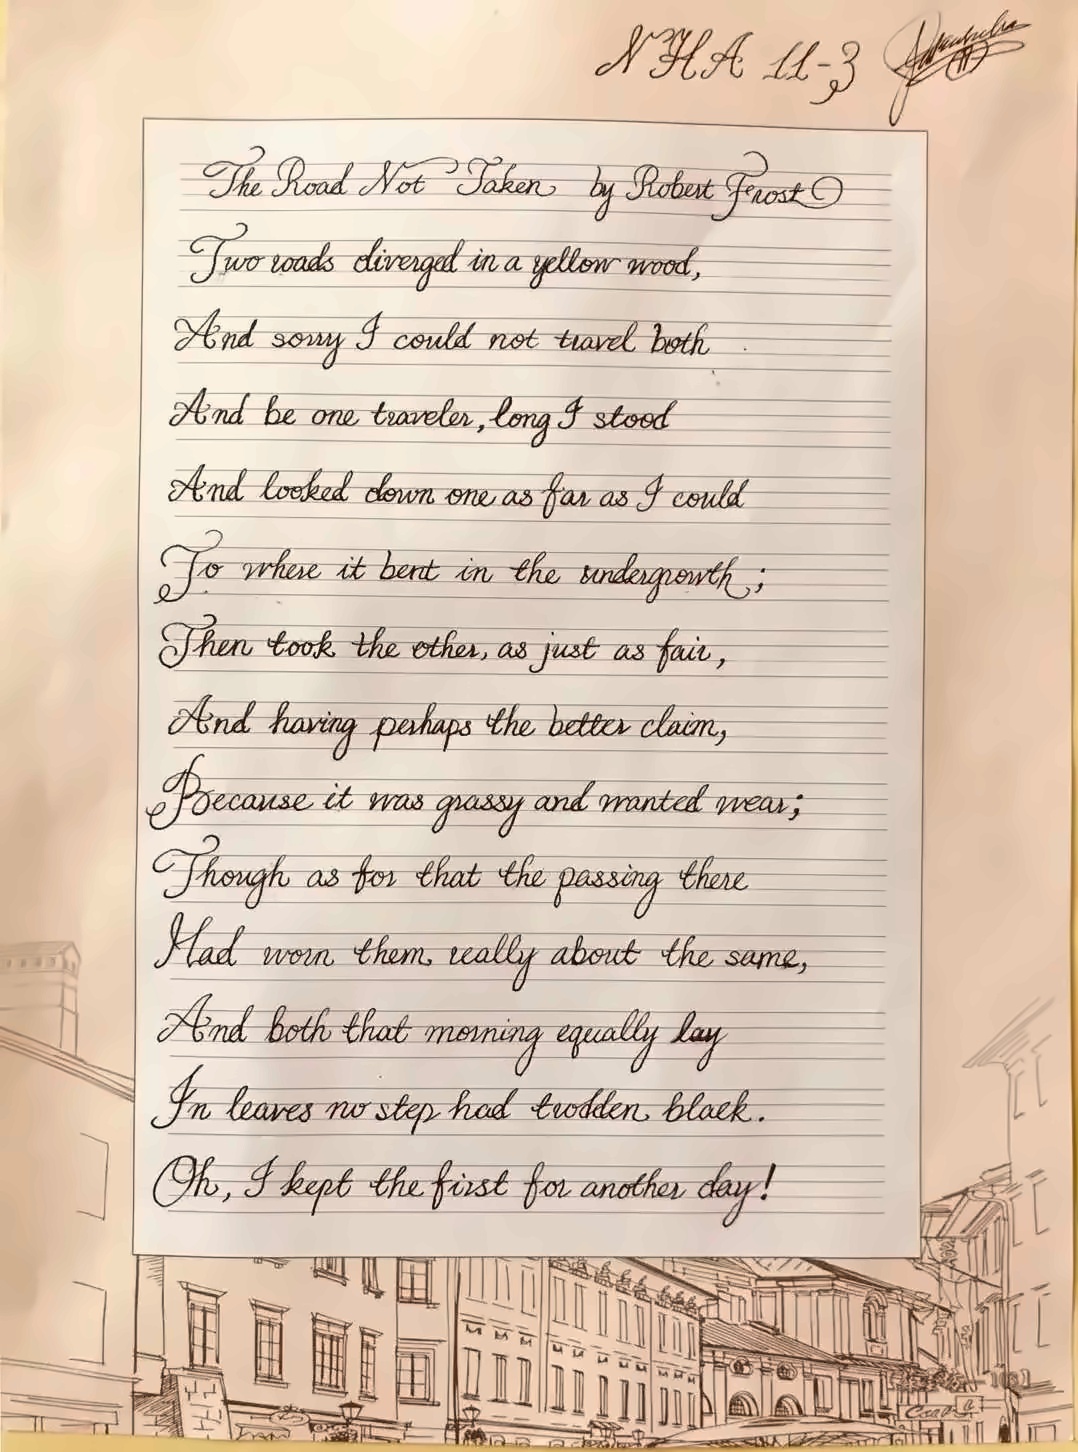 NHA 11-3
The Road Not Taken by Robert Frost
Two roads diverged in a yellow wood,
And sorry I could not travel both
And be one traveler, long I stood
And looked down one as far as I could
To where it bent in the undergrowth;
Then took the other, as just as fair,
And having perhaps the better claim,
Because it was grassy and wanted wear;
Though as for that the passing there
Had worn them really about the same,
And both that morning equally lay
In leaves no step had trodden black.
Oh, I kept the first for another day!